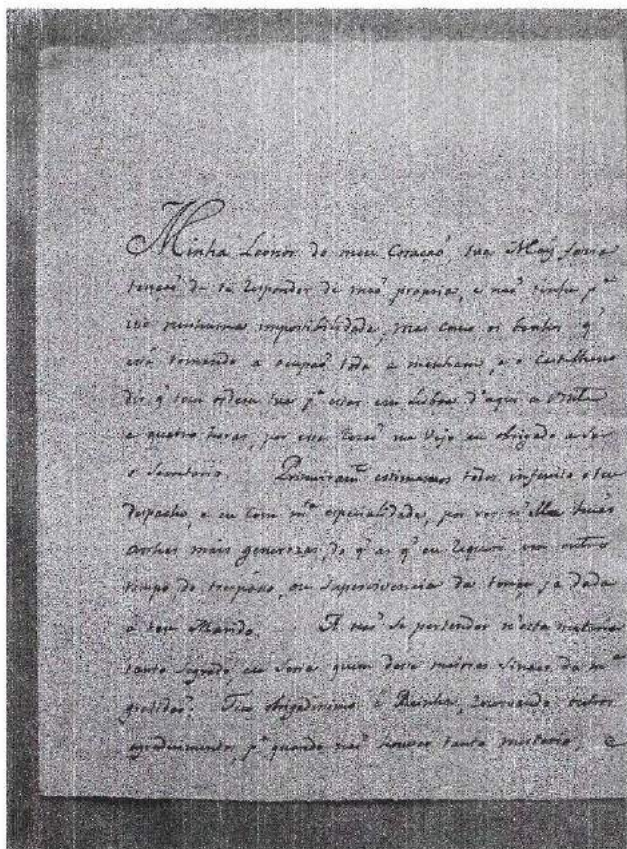 Minha Leonor do meu Coração, tua Mãy fazia
tenção de te responder de mão propria, e não tinha pª
isso nenhuma impossibilidade, mas como os banhos q'
está tomando a ocupão toda a menham, e o Castelhano
diz q' tem ordem tua pª estar em Lisboa d'aqui a vinte
e quatro horas, por essa rezão me vejo eu obrigado a ser
o Secretario. Primeiramte estimamos todos infinito o teu
despacho, e eu com mta especialidade, por ver n'elle
mais generozas, do q' as q' eu requeri em outro
tempo de, ou Supervivencia da tença ja dada
a teu Marido. A não se pertender n'esta materia
tanto segredo eu seria quem dese maiores sinaes da mª
gratidão. Fico obrigadissimo á Rainha, rezervando outros
agradecimentos, pª quando não houver tanto misterio, e